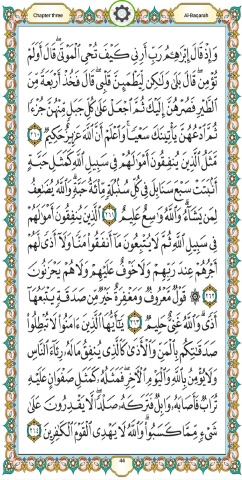 Chapter three
Al-Baqarah
وَإِذْ قَالَ إِبْرَٰهِـۧمُ رَبِّ أَرِنِى كَيْفَ تُحْىِ ٱلْمَوْتَىٰ ۖ قَالَ أَوَلَمْ
تُؤْمِن ۖ قَالَ بَلَىٰ وَلَـٰكِن لِّيَطْمَئِنَّ قَلْبِى ۖ قَالَ فَخُذْ أَرْبَعَةً مِّنَ
ٱلطَّيْرِ فَصُرْهُنَّ إِلَيْكَ ثُمَّ ٱجْعَلْ عَلَىٰ كُلِّ جَبَلٍ مِّنْهُنَّ جُزْءًا
ثُمَّ ٱدْعُهُنَّ يَأْتِينَكَ سَعْيًا ۚ وَٱعْلَمْ أَنَّ ٱللَّهَ عَزِيزٌ حَكِيمٌ ٢٦٠
مَّثَلُ ٱلَّذِينَ يُنفِقُونَ أَمْوَٰلَهُمْ فِى سَبِيلِ ٱللَّهِ كَمَثَلِ حَبَّةٍ
أَنۢبَتَتْ سَبْعَ سَنَابِلَ فِى كُلِّ سُنۢبُلَةٍ مِّا۟ئَةُ حَبَّةٍ ۗ وَٱللَّهُ يُضَـٰعِفُ
لِمَن يَشَآءُ ۗ وَٱللَّهُ وَٰسِعٌ عَلِيمٌ ٢٦١ ٱلَّذِينَ يُنفِقُونَ أَمْوَٰلَهُمْ
فِى سَبِيلِ ٱللَّهِ ثُمَّ لَا يُتْبِعُونَ مَآ أَنفَقُوا۟ مَنًّا وَلَآ أَذًى ۙ لَّهُمْ
أَجْرُهُمْ عِندَ رَبِّهِمْ وَلَا خَوْفٌ عَلَيْهِمْ وَلَا هُمْ يَحْزَنُونَ
٢٦٢ قَوْلٌ مَّعْرُوفٌ وَمَغْفِرَةٌ خَيْرٌ مِّن صَدَقَةٍ يَتْبَعُهَآ
أَذًى ۗ وَٱللَّهُ غَنِىٌّ حَلِيمٌ ٢٦٣ يَـٰٓأَيُّهَا ٱلَّذِينَ ءَامَنُوا۟ لَا تُبْطِلُوا۟
صَدَقَـٰتِكُم بِٱلْمَنِّ وَٱلْأَذَىٰ كَٱلَّذِى يُنفِقُ مَالَهُۥ رِئَآءَ ٱلنَّاسِ
وَلَا يُؤْمِنُ بِٱللَّهِ وَٱلْيَوْمِ ٱلْـَٔاخِرِ ۖ فَمَثَلُهُۥ كَمَثَلِ صَفْوَانٍ عَلَيْهِ
تُرَابٌ فَأَصَابَهُۥ وَابِلٌ فَتَرَكَهُۥ صَلْدًا ۖ لَّا يَقْدِرُونَ عَلَىٰ
شَىْءٍ مِّمَّا كَسَبُوا۟ ۗ وَٱللَّهُ لَا يَهْدِى ٱلْقَوْمَ ٱلْكَـٰفِرِينَ ٢٦٤
44